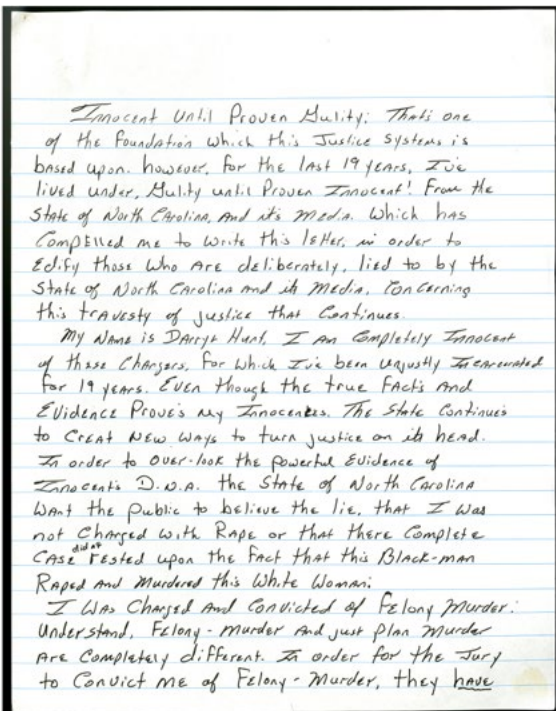 Innocent Until Proven Guilty; That's one
of the foundation which this Justice systems is
based upon. however, for the last 19 years, I've
lived under, Guilty until Proven Innocent! From the
State of North Carolina, And its Media. Which has
CompElled me to write this letter, in order to
Edify those who Are deliberately, lied to by the
State of North Carolina and its Media, Concerning
this travesty of justice that Continues.
My Name is Darryl Hunt, I Am Completely Innocent
of these Chargers, for which I've been unjustly Incarcerated
for 19 years. Even though the true FActs And
Evidence Prove's my Innocentes. The State Continue's
to CreAt New ways to turn justice on its head.
In order to over-look the powerful Evidence of
Innocent's D.N.A. the State of North Carolina
WAnt the Public to believe the lie, that I was
not Charged with Rape or that there Complete
CAse did not rested upon the Fact that this Black-man
Raped And Murdered this White Woman;
I WAs Charged And Convicted of Felony Murder:
Understand, Felony-Murder And just plan Murder
Are Completely different. In order for the Jury
to Convict me of Felony-Murder, they have